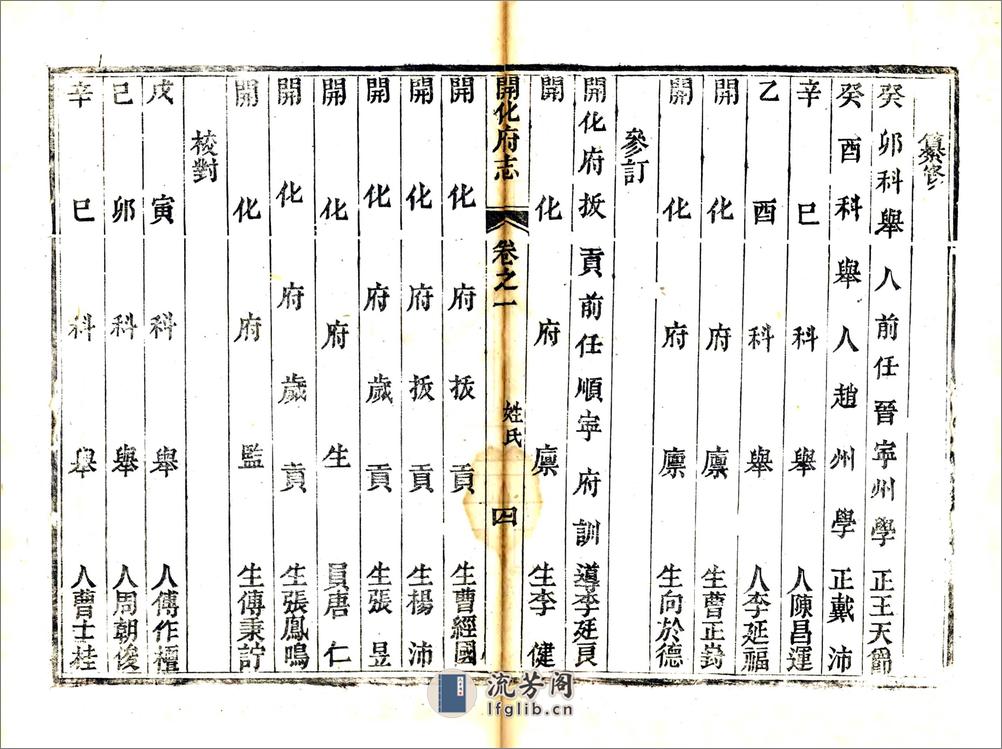 纂修
癸卯科舉人前任晉寧州學正王天爵
癸酉科舉人趙州學正戴沛
辛巳科舉人陳昌運
乙酉科舉人李延福
開化府廪生曹正
開化府廪生向於德
參訂
開化府拔貢前任順寧府訓導李廷
開化府廪生李健
開化府志 卷之一 姓氏 四
開化府拔貢生曹經國
開化府拔貢生楊沛
開化府歲貢生張昱
開化府生員唐仁
開化府歲貢生張鳳鳴
開化府監生傅秉
校對
戊寅科舉人傅作楫
己卯科舉人周朝俊
辛巳科舉人曹士桂
流芳阁
lfglib.cn